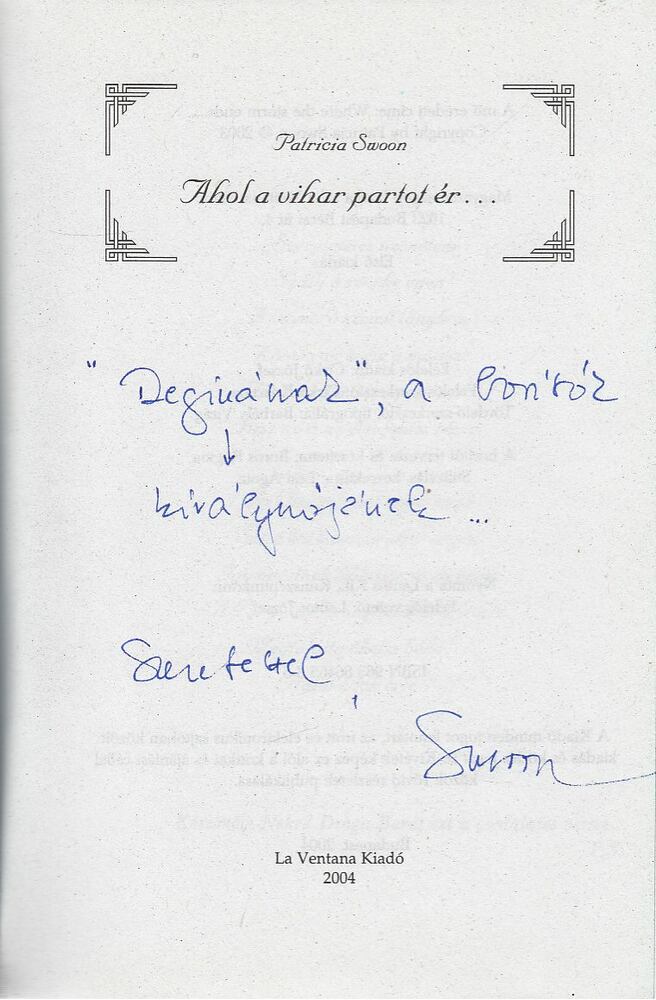 Patricia Swoon
Ahol a vihar partot ér...
"Reginának", a borítók
királynőjének ...
Szeretettel,
Swoon
La Ventana Kiadó
2004